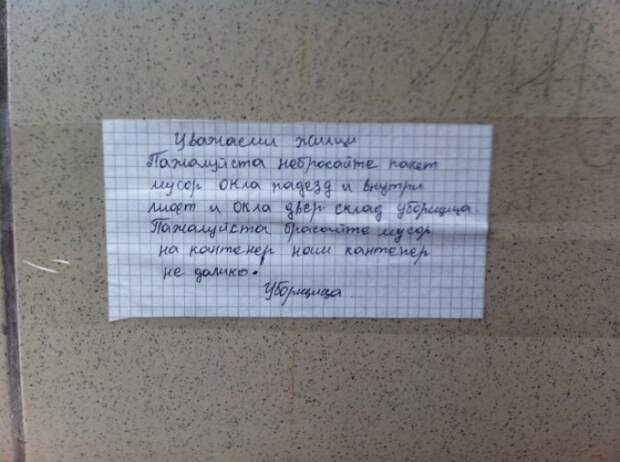 Уважаеми жилци
Пажалуйста небросайте пакет
мусор окла падезд и внутри
лифт и окла двер склад уборщица
Пажалуйста брасайте мусор
на кантенер наш кантенер
не далико.
Уборщица